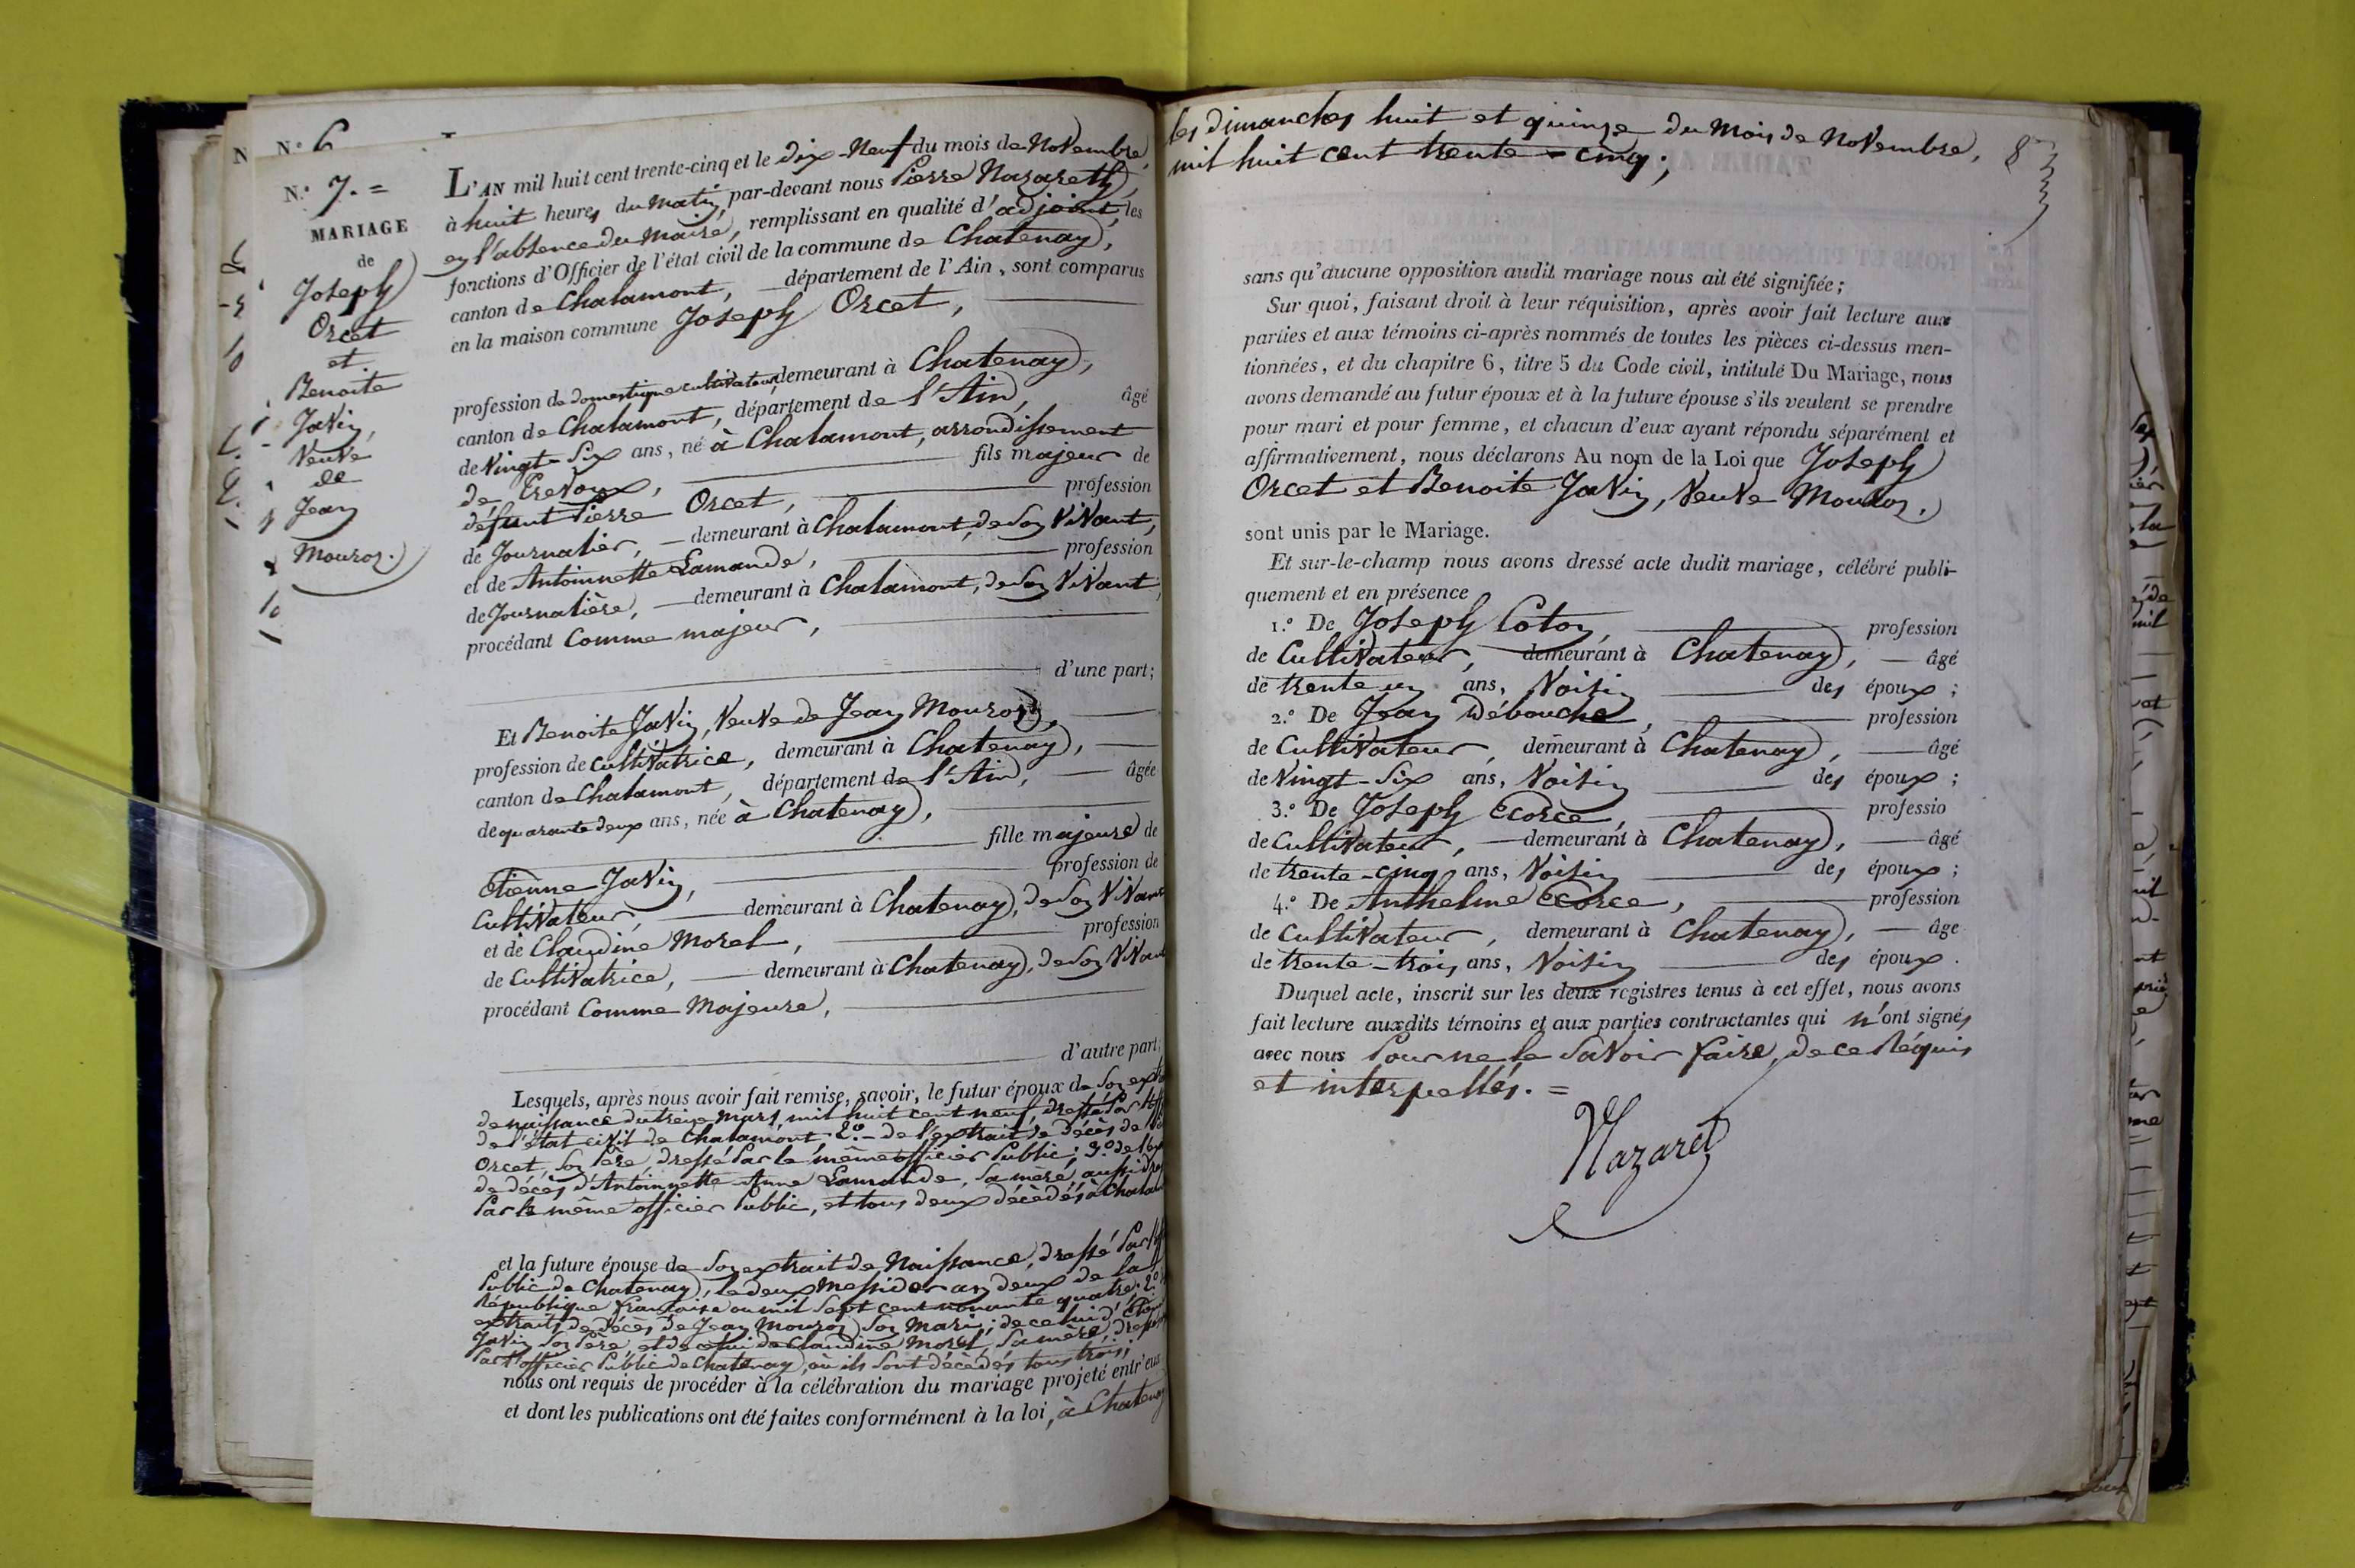 N.° 6
N.° 7. =
MARIAGE
de
Joseph
Orcet
et
Benoite
Javin,
Veuve
de
Jean
Mouron.
L'AN mil huit cent trente-cinq et le dix-Neuf du mois de Novembre,
à huit heures du matin, par-devant nous Pierre Nazareth,
en l'absence du Maire, remplissant en qualité d'adjoint, les
fonctions d'Officier de l'état civil de la commune de Chatenay,
canton de Chalamont, département de l'Ain, sont comparus
en la maison commune Joseph Orcet,
profession de domestique cultivateur, demeurant à Chatenay,
canton de Chalamont, département de l'Ain, âgé
de Vingt-Six ans, né à Chalamont, arrondissement
de Trevoux, fils majeur de
défunt Pierre Orcet, profession
de Journalier, demeurant à Chalamont, de Son Vivant,
et de Antoinnette Lamande, profession
de Journalière, demeurant à Chalamont, de Son Vivant,
procédant Comme majeur,
d'une part;
Et Benoite Javin, Veuve de Jean Mouron,
profession de Cultivatrice, demeurant à Chatenay,
canton de Chalamont, département de l'Ain, âgée
de quarante deux ans, née à Chatenay,
fille majeure de
Etienne Javin, profession de
Cultivateur, demeurant à Chatenay, de Son Vivant
et de Claudine Morel, profession
de Cultivatrice, demeurant à Chatenay, de Son Vivant
procédant Comme Majeure,
d'autre part;
Lesquels, après nous avoir fait remise, savoir, le futur époux de Son
de naissance du treize mars, mil huit cent neuf, dressé Par
de l'état civil de Chalamont; 2.° de l'extrait de décès de
Orcet, Son Père, dressé Par le même officier Public; 3.° de
de décès d'Antoinnette Anne Lamande, Sa mère, aussi
Par le même officier Public, et tous deux décédés à
et la future épouse de Son extrait de Naissance, dressé Par
Public de Chatenay, le deux Messidor an deux de la
République française ou mil Sept cent nonante quatre; 2.°
extraits de décès de Jean Mouron Son Mari; de celui d'
Javin Son Père, et de celui de Claudine Morel, Sa mère,
Par l'officier Public de Chatenay, où ils Sont décédés tous trois;
nous ont requis de procéder à la célébration du mariage projeté entr'eux
et dont les publications ont été faites conformément à la loi, à Chatenay
les dimanches huit et quinze du Mois de Novembre,
mil huit cent trente-cinq;
8
sans qu'aucune opposition audit mariage nous ait été signifiée;
Sur quoi, faisant droit à leur réquisition, après avoir fait lecture aux
parties et aux témoins ci-après nommés de toutes les pièces ci-dessus men-
tionnées, et du chapitre 6, titre 5 du Code civil, intitulé Du Mariage, nous
avons demandé au futur époux et à la future épouse s'ils veulent se prendre
pour mari et pour femme, et chacun d'eux ayant répondu séparément et
affirmativement, nous déclarons Au nom de la Loi que Joseph
Orcet et Benoite Javin, Veuve Mouron.
sont unis par le Mariage.
Et sur-le-champ nous avons dressé acte dudit mariage, célébré publi-
quement et en présence
1.° De Joseph Coton, profession
de Cultivateur, demeurant à Chatenay, âgé
de trente un ans, Voisin des époux;
2.° De Jean Débouche, profession
de Cultivateur, demeurant à Chatenay, âgé
de Vingt-Six ans, Voisin des époux;
3.° De Joseph Ecorce, professio
de Cultivateur, demeurant à Chatenay, âgé
de trente-cinq ans, Voisin des époux;
4.° De Anthelme Ecorce, profession
de Cultivateur, demeurant à Chatenay, âgé
de trente-trois ans, Voisin des époux.
Duquel acte, inscrit sur les deux registres tenus à cet effet, nous avons
fait lecture auxdits témoins et aux parties contractantes qui n'ont signés
avec nous Pour ne le Savoir faire, de ce Réquis
et interpellés. =
Nazaret